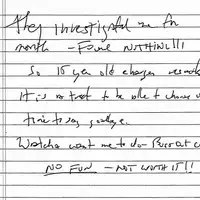 They investigated me for
month - Found NOTHING!!!
So 15 year old charges
It is no treat to be able to choose
time to say goodbye.
Watcha want me to do - Bust out
NO FUN - NOT WORTH IT!!